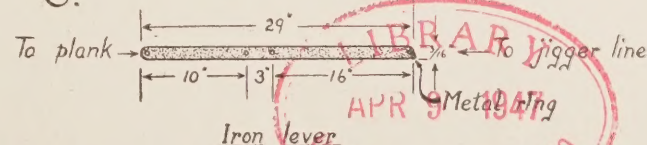 29"
To plank
To jigger line
10" 3" 16"
Metal ring
Iron lever
LIBRARY
APR 9 1947